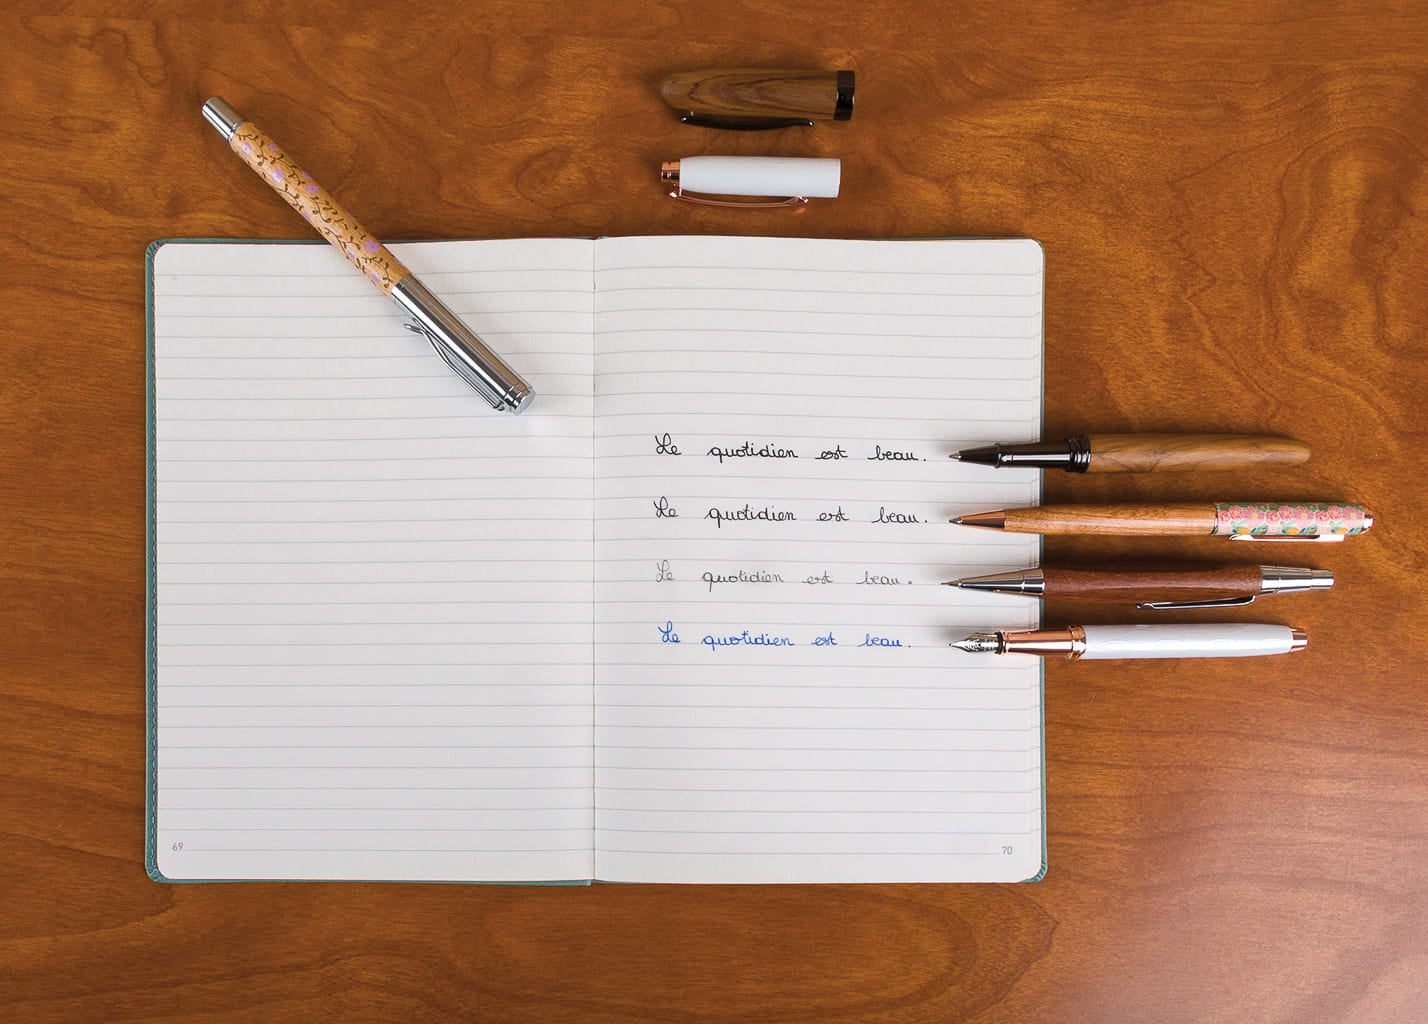 Le quotidien est beau.
Le quotidien est beau.
Le quotidien est beau.
Le quotidien est beau.
69
70